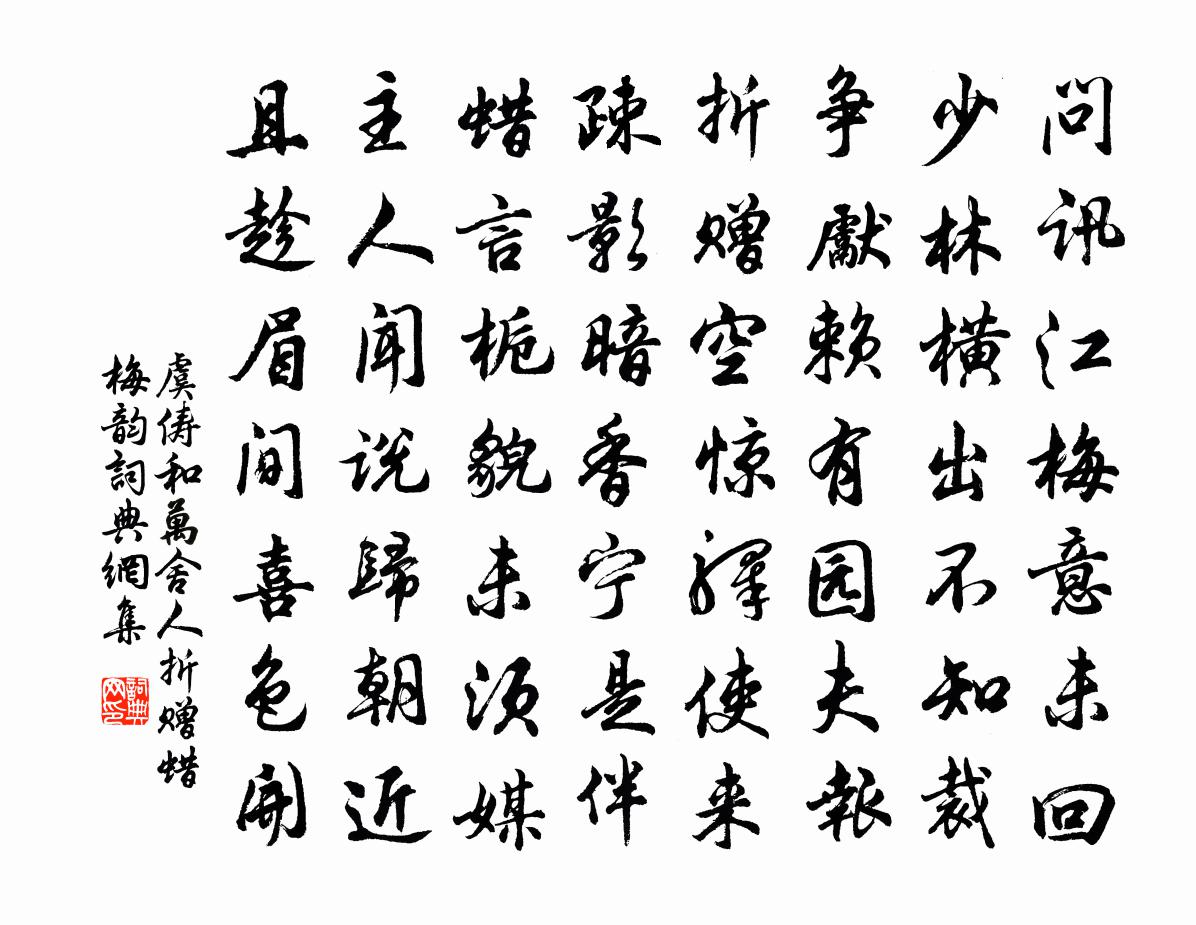 问讯江梅意未回
少林横出不知裁
争獻赖有园夫報
折赠空惊驛使来
疎影暗香宁是伴
蜡言栀貌未须媒
主人闻说歸朝近
且趁眉间喜色開
虞俦和萬舍人折赠蜡
梅韵詞典網集
詞典
网印